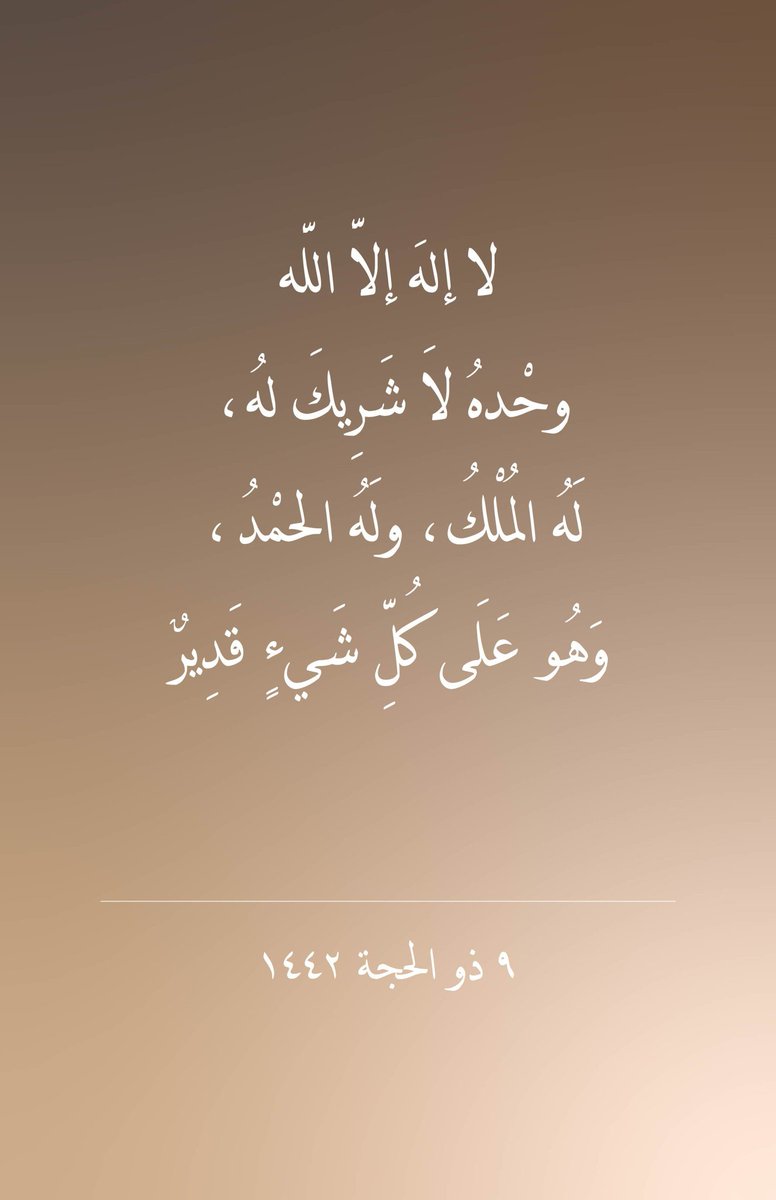 لا إلهَ إلاّ اللّه
وحْدهُ لاَ شَرِيكَ لهُ،
لَهُ المُلْكُ، ولَهُ الحمْدُ،
وَهُو عَلَى كُلِّ شَيءٍ قَدِيرٌ
٩ ذو الحجة ١٤٤٢